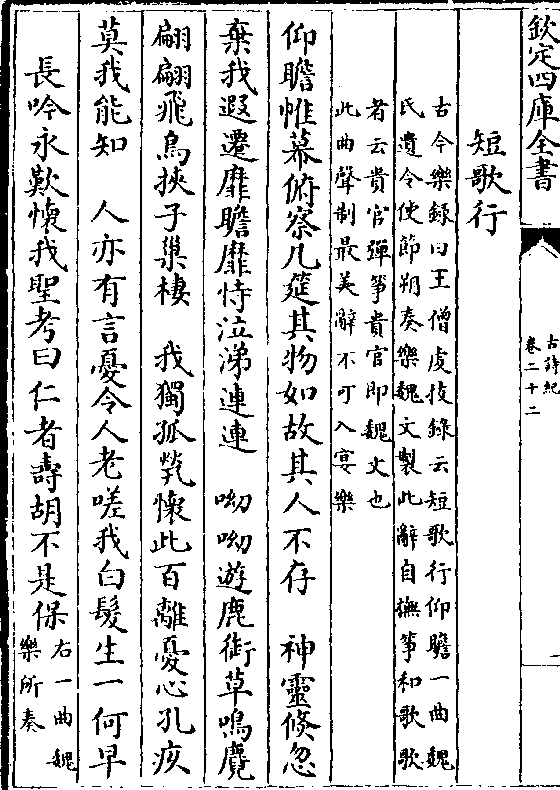 欽定四庫全書
古詩紀
卷二十二
一
短歌行
古今樂録曰王僧虔技錄云短歌行仰瞻一曲魏
氏遺令使節朔奏樂魏文製此辭自撫箏和歌歌
者云貴官彈箏貴官即魏文也
此曲聲制最美辭不可入宴樂
仰瞻帷幕俯察几筵其物如故其人不存　神靈倐忽
棄我遐遷靡瞻靡恃泣涕連連　呦呦遊鹿銜草鳴麑
翩翩飛鳥挾子巢棲　我獨孤煢懷此百離憂心孔疚
莫我能知　人亦有言憂令人老嗟我白髮生一何早
長吟永歎懷我聖考曰仁者壽胡不是保
右一曲魏
樂所奏